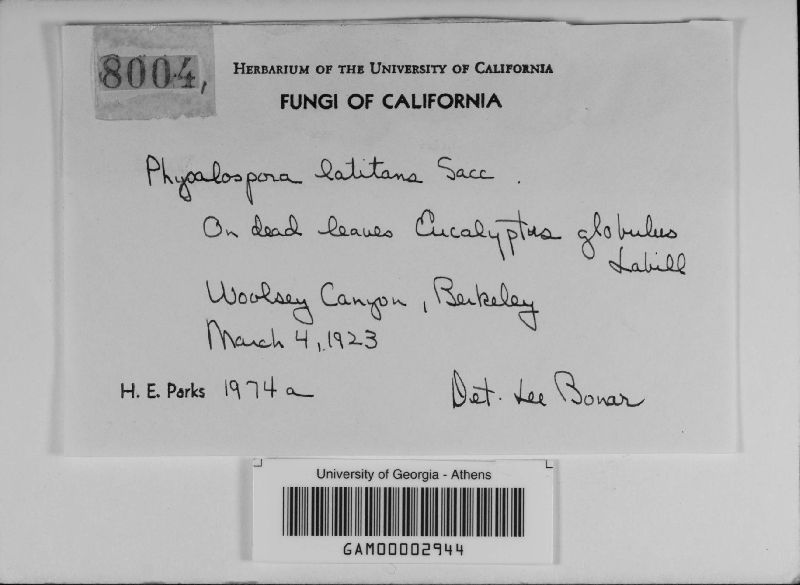 8004,
HERBARIUM OF THE UNIVERSITY OF CALIFORNIA
FUNGI OF CALIFORNIA
Physalospora latitans Sacc.
On dead leaves Eucalyptus globulus
Labill
Woolsey Canyon, Berkeley
March 4, 1923
H. E. Parks 1974a
Det. Lee Bonar
University of Georgia - Athens
GAM00002944